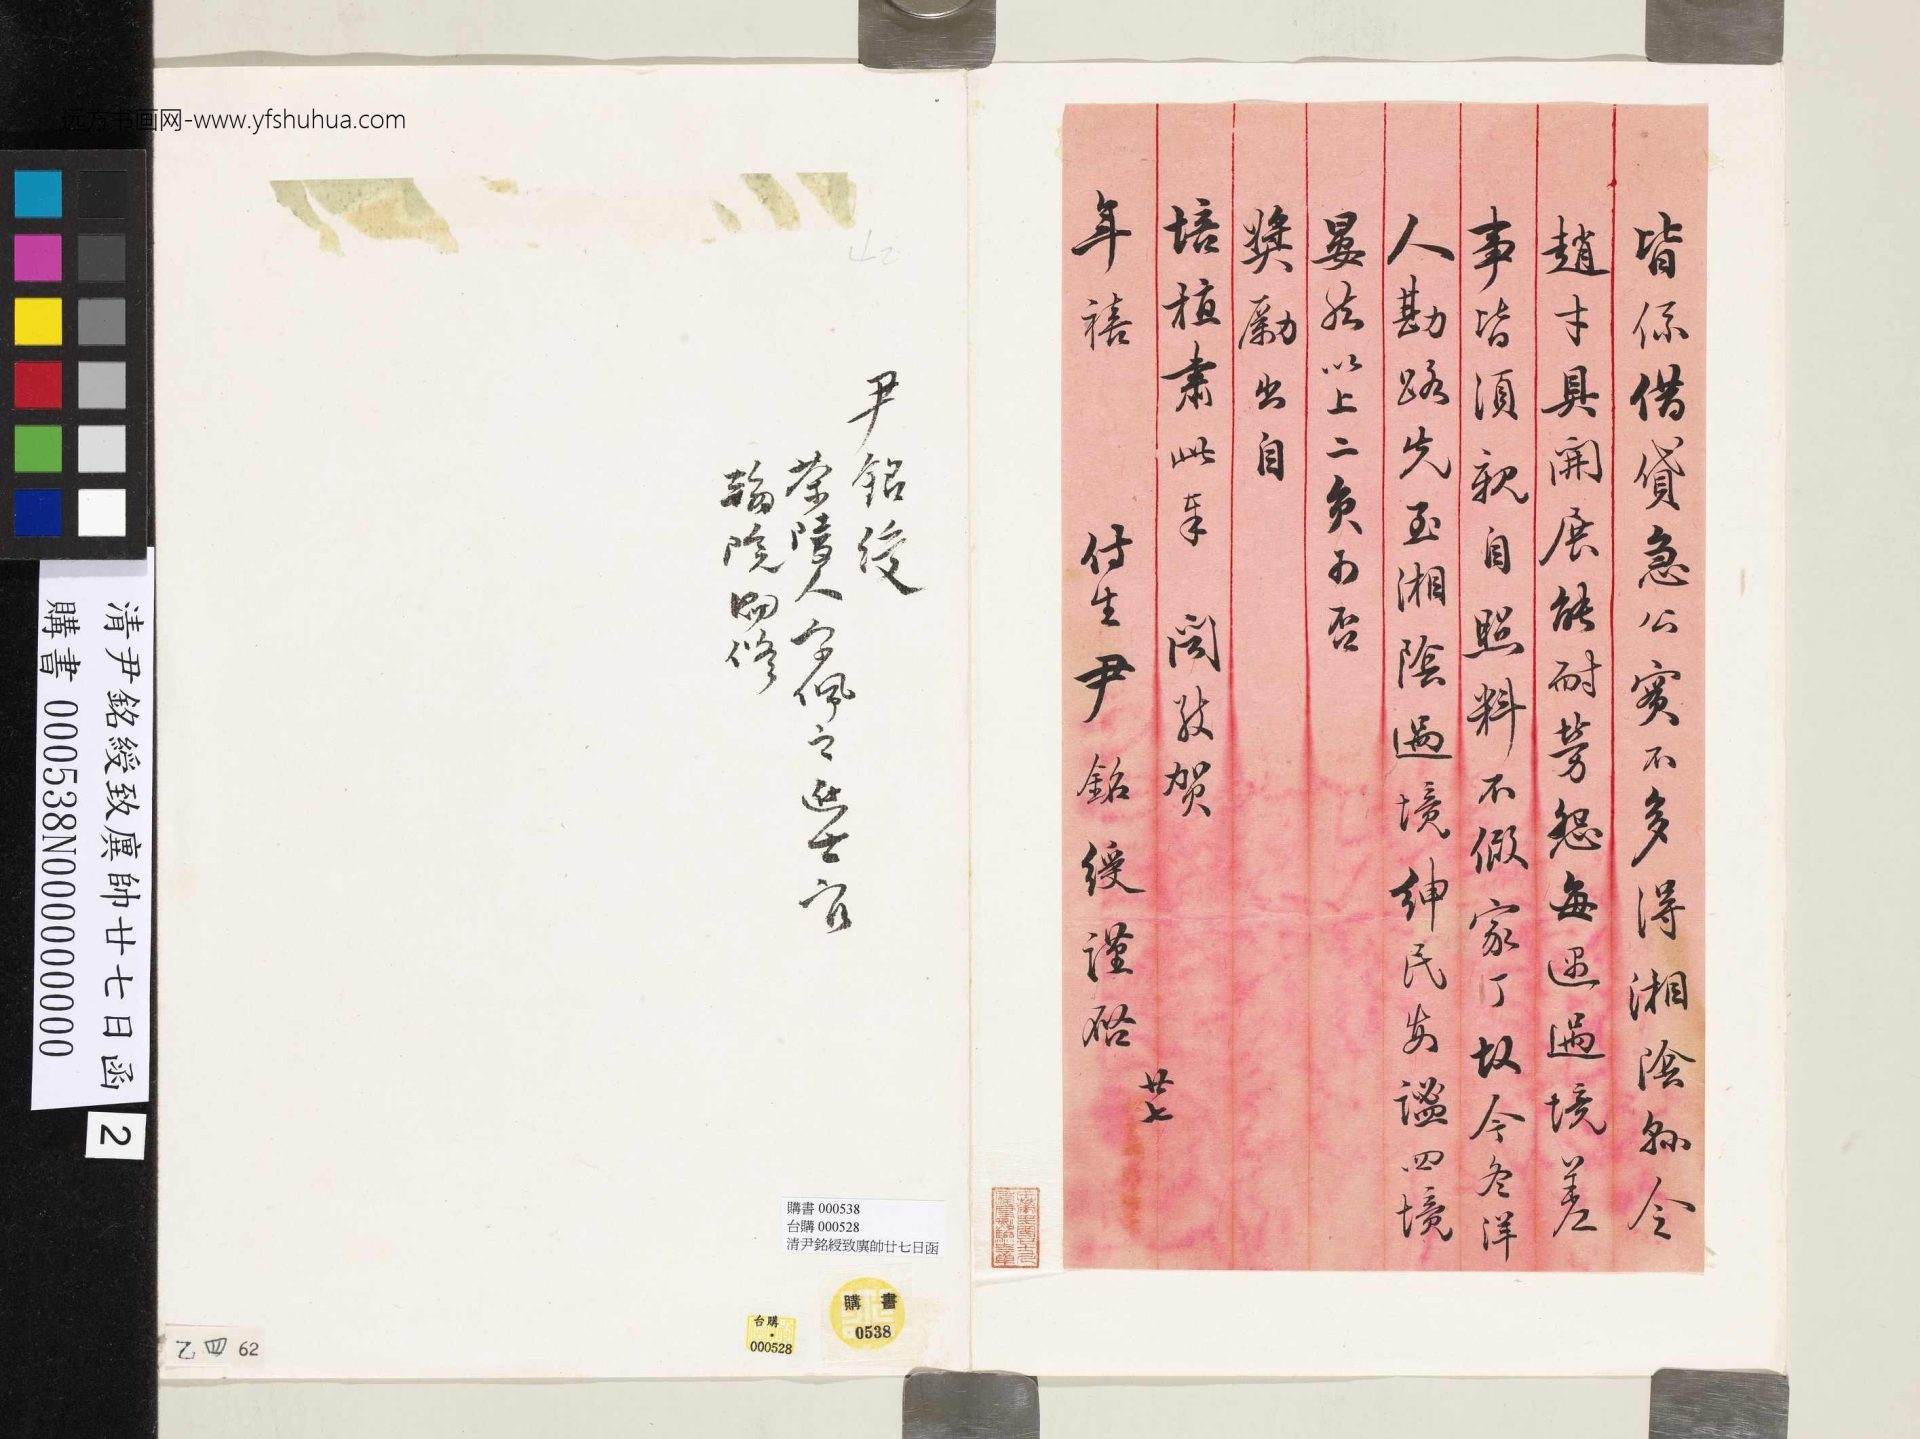 皆係借貸急公實不多得湘陰縣令
趙才具開展能耐勞怨每遇過境差
事皆須親自照料不假家丁故今冬洋
人勘路先至湘陰過境紳民安謐四境
晏然以上二員可否
獎勵出自
培植肅此奉 聞敬賀
年禧 侍生尹銘綬謹啟
廿七
尹銘綬
茶陵人字佩之進士官
翰院編修
远方书画网-www.yfshuhua.com
清尹銘綬致廙帥廿七日函
購書 000538N000000000
2
購書 000538
台購 000528
清尹銘綬致廙帥廿七日函
購書
0538
台購
000528
乙四 62